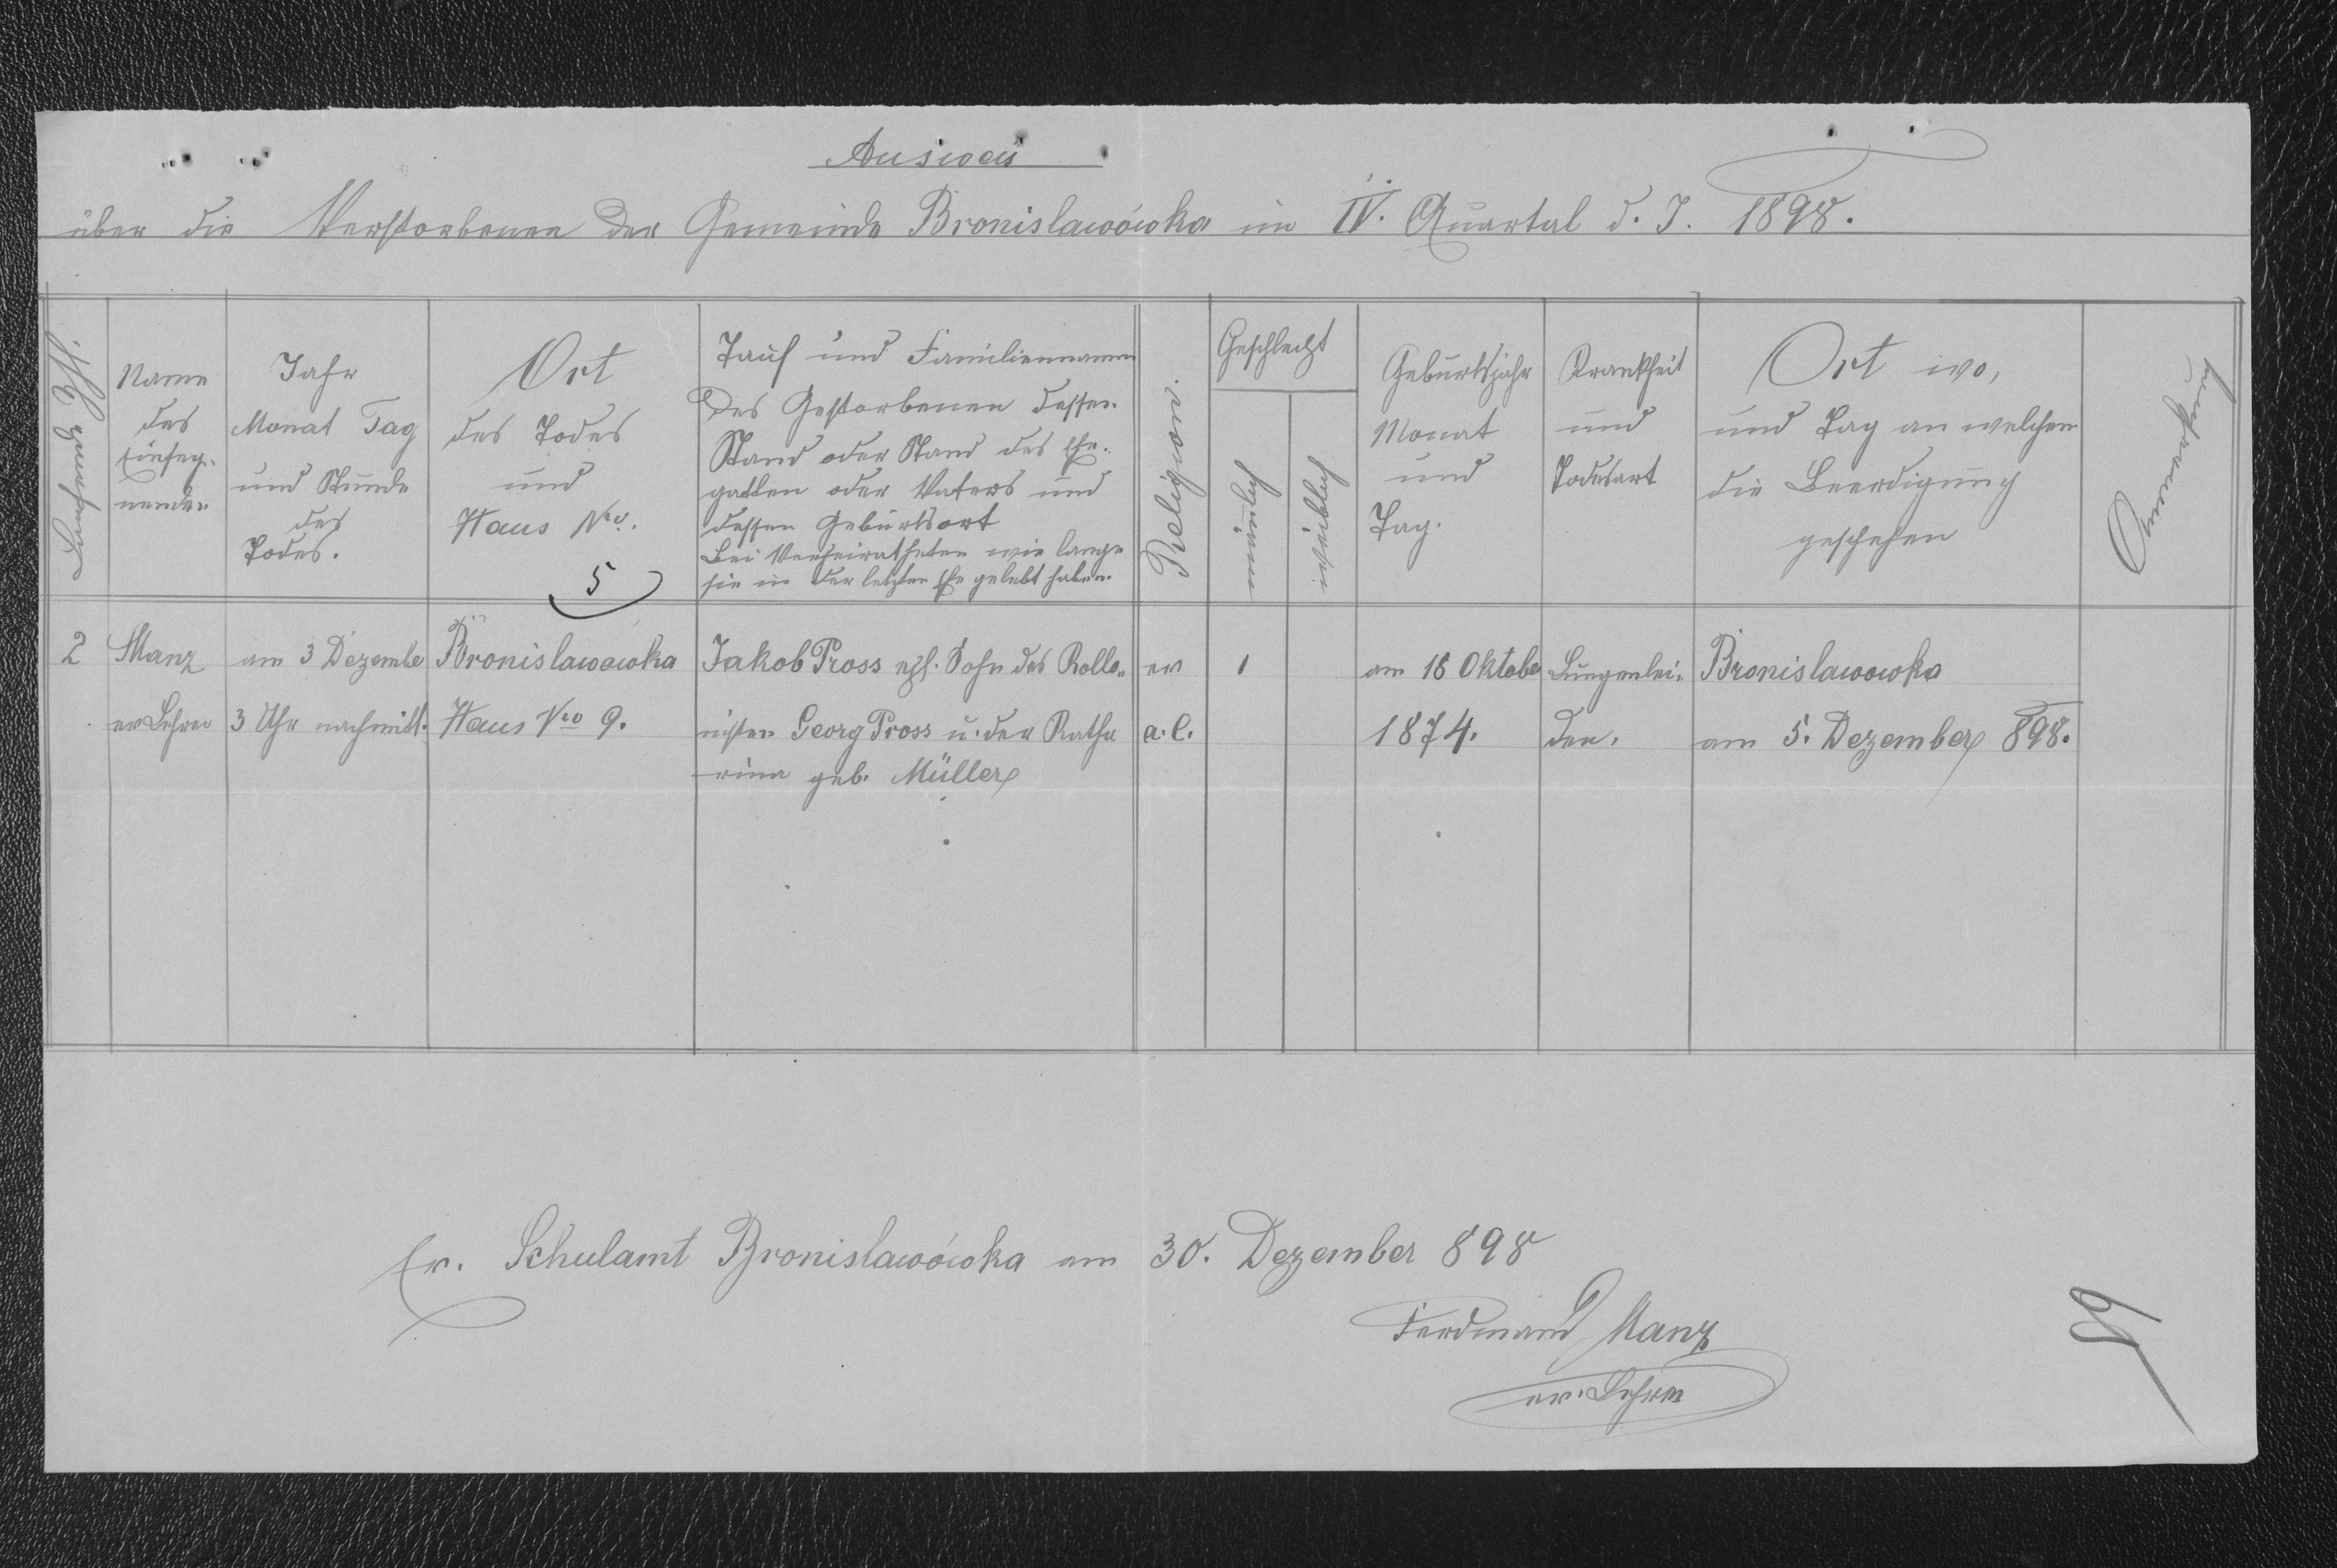 Ausweis
über die Verstorbenen der Gemeinde Bronislawówka im IV. Quartal d. J. 1898.
Name
des
Einseg-
nenden
Jahr
Monat Tag
und Stunde
des
Todes.
Ort
des Todes
und
Haus Nro.
5
Tauf und Familiennamen
des Gestorbenen dessen
Stand oder Stand des Ehe-
gatten oder Vaters und
dessen Geburtsort
Bei Verheiratheten wie lange
sie in der letzten Ehe gelebt haben.
Religion.
Geschlecht
männlich
weiblich
Geburtsjahr
Monat
und
Tag.
Krankheit
und
Todesart
Ort wo,
und Tag an welchen
die Beerdigung
geschehen
Anmerkung
2 Manz am 3 Dezember Bronislawowka Jakob Pross ehl. Sohn des Kollo- ev 1 am 16 Oktober Lungenlei- Bronislawowka
ev Lehrer 3 Uhr nachmitt. Haus Nro 9. nisten Georg Pross u. der Katha a. C. 1874. den. am 5. Dezember 898.
rina geb. Müller
Ev. Schulamt Bronislawówka am 30. Dezember 898
Ferdinand Manz
ev. Lehrer